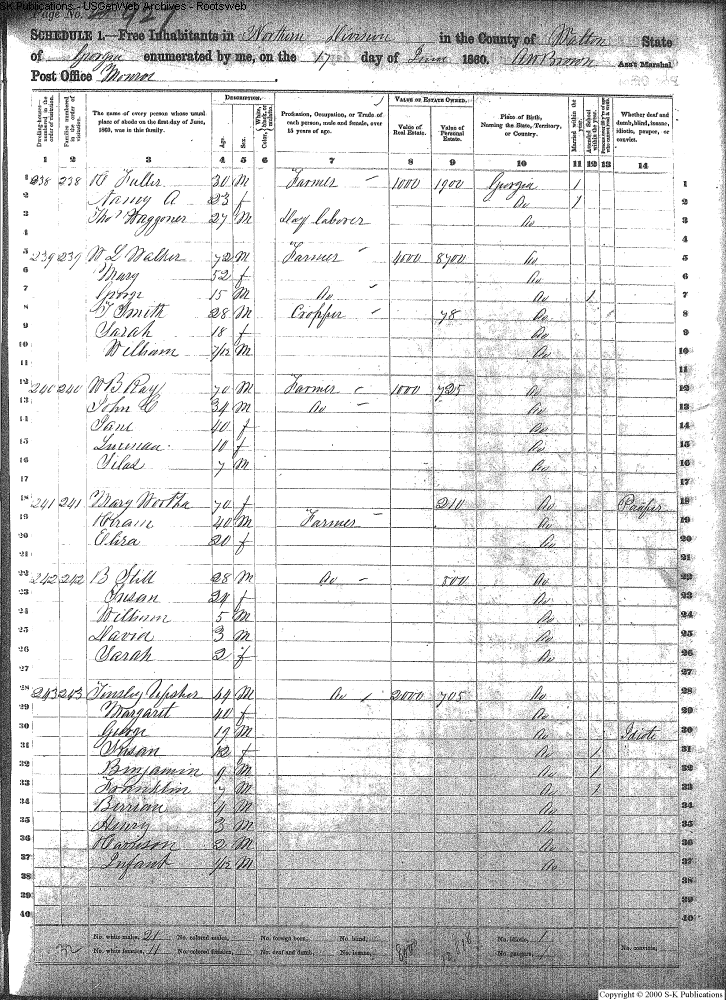 S-K Publications - USGenWeb Archives - Rootsweb
Page No. 927
SCHEDULE 1.—Free Inhabitants in Northern Division in the County of Walton State
of Georgia enumerated by me, on the 17 day of June 1860. Ass't Marshal
Post Office Monroe
DESCRIPTION. VALUE OF ESTATE OWNED.
Dwelling-houses numbered in the order of visitation. Families numbered in the order of visitation. The name of every person whose usual place of abode on the first day of June, 1860, was in this family. Age. Sex. Color, White, black, or mulatto. Profession, Occupation, or Trade of each person, male and female, over 15 years of age. Value of Real Estate. Value of Personal Estate. Place of Birth, Naming the State, Territory, or Country. Married within the year. Attended School within the year. Whether deaf and dumb, blind, insane, idiotic, pauper, or convict.
1 2 3 4 5 6 7 8 9 10 11 12 13 14
1 238 238 Fuller 30 M Farmer 1000 1900 Georgia 1 1
2 Nancy A 23 f Do 1 2
3 Thos Waggoner 27 M Day laborer Do 3
4 4
5 239 239 W L Walker 72 M Farmer 4000 8700 Do 5
6 Mary 52 f Do 6
7 George 15 M Do Do 1 7
8 Smith 28 M Cropper 78 Do 8
9 Sarah 18 f Do 9
10 William 7/12 M Do 10
11 11
12 240 240 W B Ray 70 M Farmer 1000 725 Do 12
13 John C 34 M Do Do 13
14 Jane 40 f Do 14
15 10 f Do 15
16 Silas 7 M Do 16
17 17
18 241 241 Mary Wortha 70 f 210 Do Pauper 18
19 Hiram 40 M Farmer Do 19
20 Elira 20 f Do 20
21 21
22 242 242 B Still 28 M Do 800 Do 22
23 Susan 24 f Do 23
24 William 5 M Do 24
25 David 3 M Do 25
26 Sarah 2 f Do 26
27 27
28 243 243 Tinsley Upsher 44 M Do 2000 705 Do 28
29 Margaret 40 f Do 29
30 George 19 M Do Idiotic 30
31 Susan 12 f Do 1 31
32 Benjamin 9 M Do 1 32
33 Franklin 7 M Do 1 33
34 Berrian 4 M Do 34
35 Henry 3 M Do 35
36 Harrison 2 M Do 36
37 Infant 1/12 M Do 37
38 38
39 39
40 40
No. white males, 21 No. colored males, No. foreign born, No. blind, 8000 No. idiotic, 1
No. white females, 11 No. colored females, No. deaf and dumb, No. insane, No. paupers, 1 No. convicts,
Copyright © 2000 S-K Publications